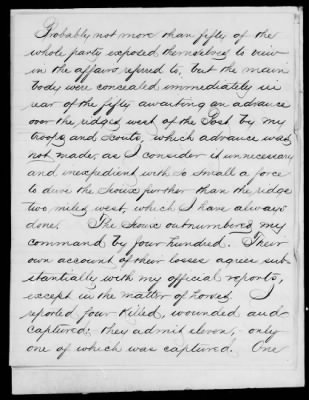 Probably not more than fifty of the
whole party exposed themselves to view
in the affairs refered to, but the main
body were concealed immediately in
rear of the fifty awaiting an advance
over the ridges west of the Post by my
troops and scouts, which advance was
not made, as I consider it unnecessary
and inexpedient with so small a force
to drive the Sioux further than the ridge
two miles west, which I have always
done. The Sioux outnumbered my
command by four hundred. Their
own account of their losses agrees sub-
stantially with my official reports,
except in the matter of horses I
reported four killed, wounded and
captured: they admit eleven, only
one of which was captured. One